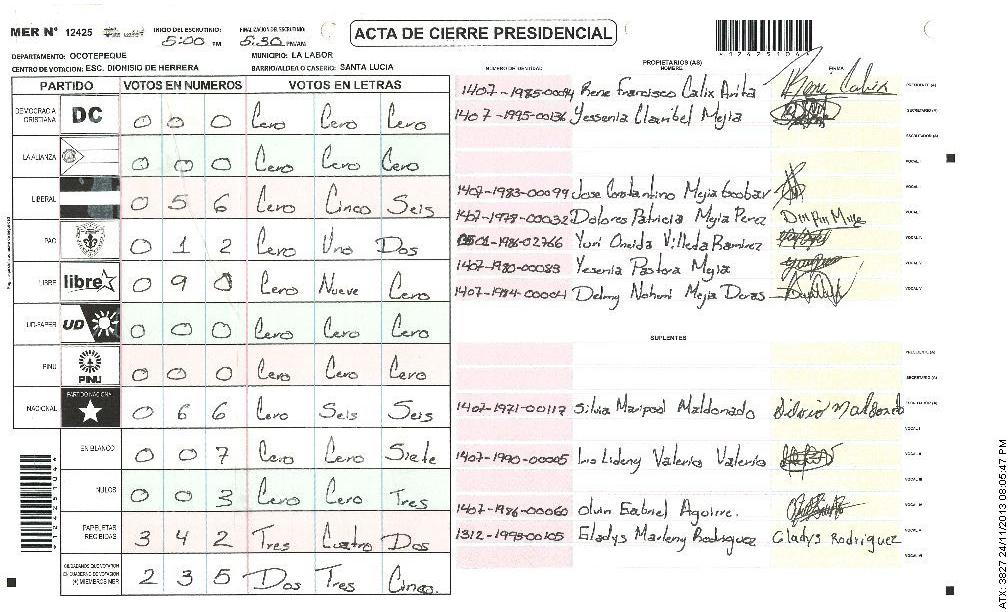 MER N° 12425
INICIO DEL ESCRUTINIO: 5:00 PM
FINALIZACION DEL ESCRUTINIO: 5:30 PM/AM
ACTA DE CIERRE PRESIDENCIAL
DEPARTAMENTO: OCOTEPEQUE MUNICIPIO: LA LABOR
CENTRO DE VOTACION: ESC. DIONISIO DE HERRERA BARRIO/ALDEA O CASERIO: SANTA LUCIA
PARTIDO VOTOS EN NUMEROS VOTOS EN LETRAS
DEMOCRACIA CRISTIANA DC 0 0 0 Cero Cero Cero
LA ALIANZA 0 0 0 Cero Cero Cero
LIBERAL 0 5 6 Cero Cinco Seis
PAC 0 1 2 Cero Uno Dos
LIBRE libre 0 9 0 Cero Nueve Cero
UD-FAPER UD 0 0 0 Cero Cero Cero
PINU PINU 0 0 0 Cero Cero Cero
NACIONAL PARTIDO NACIONAL 0 6 6 Cero Seis Seis
EN BLANCO 0 0 7 Cero Cero Siete
NULOS 0 0 3 Cero Cero Tres
PAPELETAS RECIBIDAS 3 4 2 Tres Cuatro Dos
CIUDADANOS QUE VOTARON EN CUADERNO DE VOTACION (+) MIEMBROS MER 2 3 5 Dos Tres Cinco.
PROPIETARIOS (AS)
NUMERO DE IDENTIDAD NOMBRE FIRMA
1407-1985-00094 Rene Francisco Calix Arita PRESIDENTE (A)
1407-1995-00136 Yessenia Claribel Mejia SECRETARIO (A)
ESCRUTADOR (A)
VOCAL I
1407-1983-00099 Jose Constantino Mejia Escobar
1407-1978-00032 Dolores Patricia Mejia Perez
1986-02766 Yuri Oneida Villeda Ramirez
1407-1980-00083 Yesenia Pastora Mejia
1407-1984-00004 Delmy Nohemi Mejia Deras
SUPLENTES
PRESIDENTE (A)
SECRETARIO (A)
1407-1971-00117 Silvia Marisol Maldonado Silvia Maldonado
1407-1990-00005 Lideny Valerio Valerio
1407-1986-00060 Olvin Gabriel Aguirre.
1312-1995-00105 Gladys Marleny Rodriguez Gladys Rodriguez
ATX: 3827 24/11/2013 08:05:47 PM